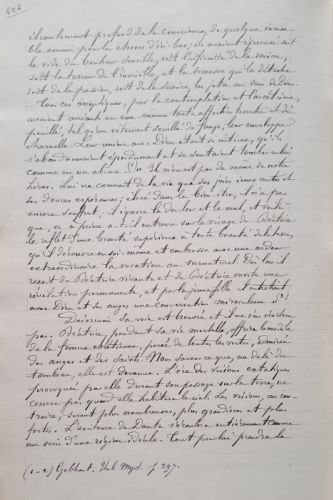 424
ébranlement profond de la conscience, de quelque invisi-
ble ennui pour les choses d'ici-bas; ils avaient éprouvé soit
le vide du bonheur sensible, soit l'infirmité de la raison,
soit la terreur de l'invisible, et la secousse qui les détacha
soit de la passion, soit de la science, les jeta au sein de Dieu.
Tous ces mystiques, par la contemplation et l'ascétisme,
avaient anéanti en eux-mêmes toute affection tendre et dé-
pouillé, tel qu'un vêtement souillé de fange, leur enveloppe
charnelle. Leur union avec Dieu était si intime, qu'ils
s'abandonnaient éperdument et se sentaient tomber en lui
comme en un abîme. Or il n'en est pas de même de notre
héros. Lui ne connaît de la vie que ses joies innocentes et
ses douces espérances; élevé dans le bien-être, il n'a pas
encore souffert. Il ignore la douleur et le mal, et voilà
que, à peine a-t-il entrevu sur le visage de Béatrice
le reflet d'une beauté supérieure à toute beauté de la terre,
qu'il découvre en soi-même et embrasse avec une ardeur
extraordinaire la vocation au surnaturel. Dès lors il
reçoit de Béatrice vivante et de Béatrice morte une
révélation permanente, et par la jeune fille il entretient
avec Dieu et les anges une conversation miraculeuse (2)
Désormais sa voie est tracée et il ne s'en écartera
pas. Béatrice, pendant sa vie mortelle, offrira le modèle
de la femme chrétienne, parée de toutes les vertus, admirée
des anges et des Saints. Nous savons ce que, au delà du
tombeau, elle est devenue. L'ère des visions extatiques
provoquées par elle durant son passage sur la terre, ne
cessera pas quand elle habitera le ciel. Les visions, au con-
traire, seront plus nombreuses, plus grandioses et plus
fortes. L'existence de Dante s'écoulera entièrement comme
au sein d'une région idéale. Tout par lui prendra la
(1-2) Gebhart. Ital. Myst. p. 297.